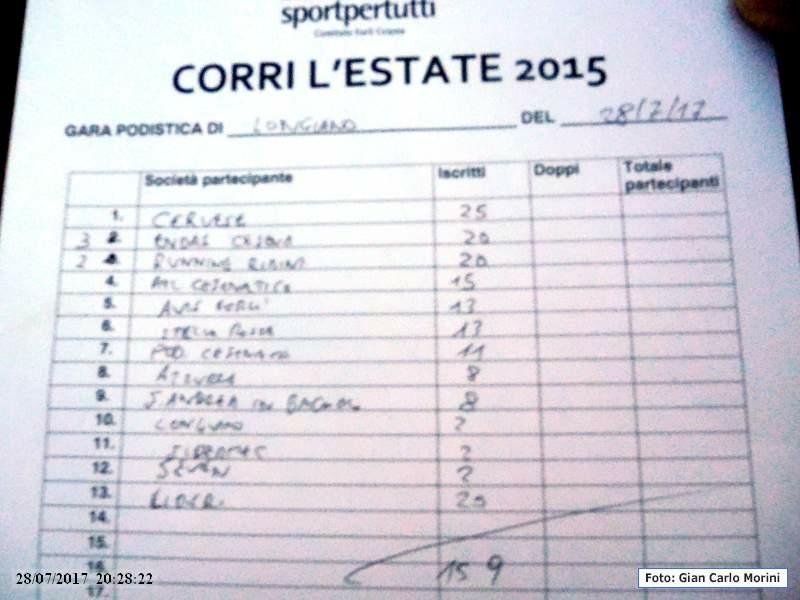 sportpertutti
Comitato Forlì Cesena
CORRI L'ESTATE 2015
GARA PODISTICA DI LONGIANO DEL 28/7/17
Società partecipante Iscritti Doppi Totale partecipanti
1. CERVESE 25
3 2. ENDAS CESENA 20
2 3. RUNNING RIMINI 20
4. ATL CESENATICO 15
5. AVIS FORLI' 13
6. STELLA ROSSA 13
7. POD. CESENATE 11
8. 8
9. S. ANDREA IN BAGNOLO 8
10. LONGIANO 2
11. LIBERTAS 2
12. SEVEN 2
13. LIBERI 20
14.
15.
16. 159
17.
28/07/2017 20:28:22
Foto: Gian Carlo Morini